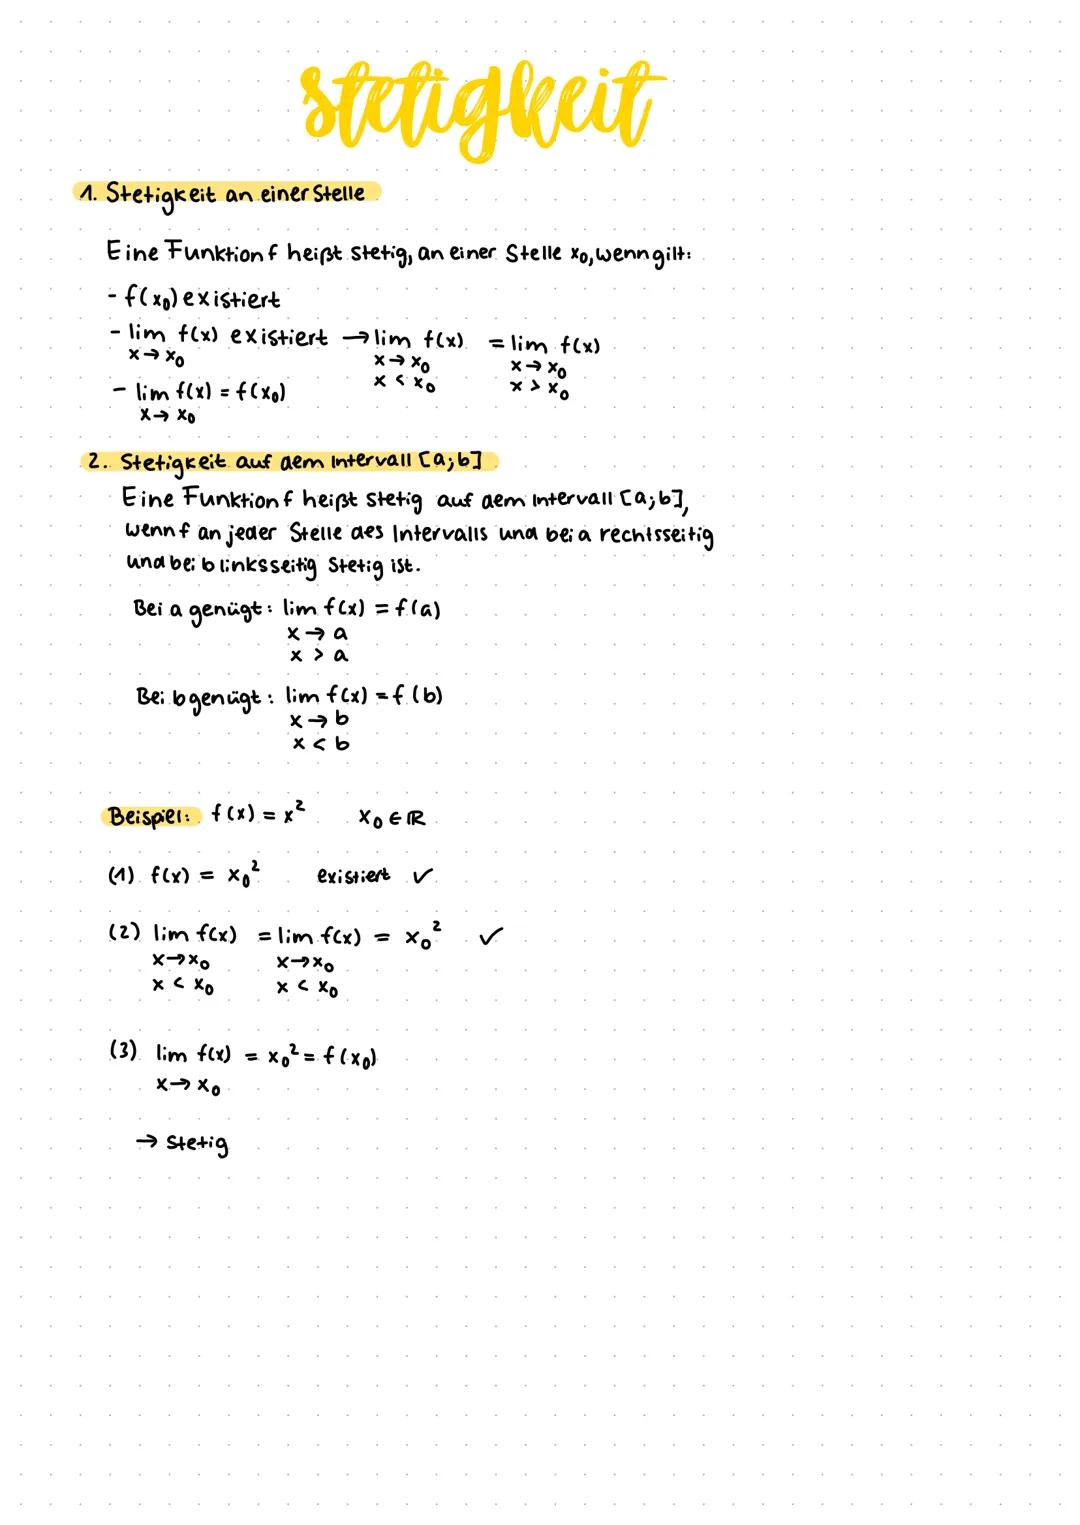 Stetigkeit
1. Stetigkeit an einer Stelle
Eine Funktion f heißt stetig, an einer Stelle x₀, wenn gilt:
- f(x₀) existiert
- lim f(x) existiert → lim f(x) = lim f(x)
x → x₀ x → x₀ x → x₀
x < x₀ x > x₀
- lim f(x) = f(x₀)
x → x₀
2. Stetigkeit auf dem Intervall [a;b]
Eine Funktion f heißt stetig auf dem Intervall [a;b],
wenn f an jeder Stelle des Intervalls und bei a rechtsseitig
und bei b linksseitig stetig ist.
Bei a genügt: lim f(x) = f(a)
x → a
x > a
Bei b genügt: lim f(x) = f(b)
x → b
x < b
Beispiel: f(x) = x² x₀ ∈ ℝ
(1) f(x) = x₀² existiert ✓
(2) lim f(x) = lim f(x) = x₀² ✓
x → x₀ x → x₀
x < x₀ x < x₀
(3) lim f(x) = x₀² = f(x₀)
x → x₀
→ stetig